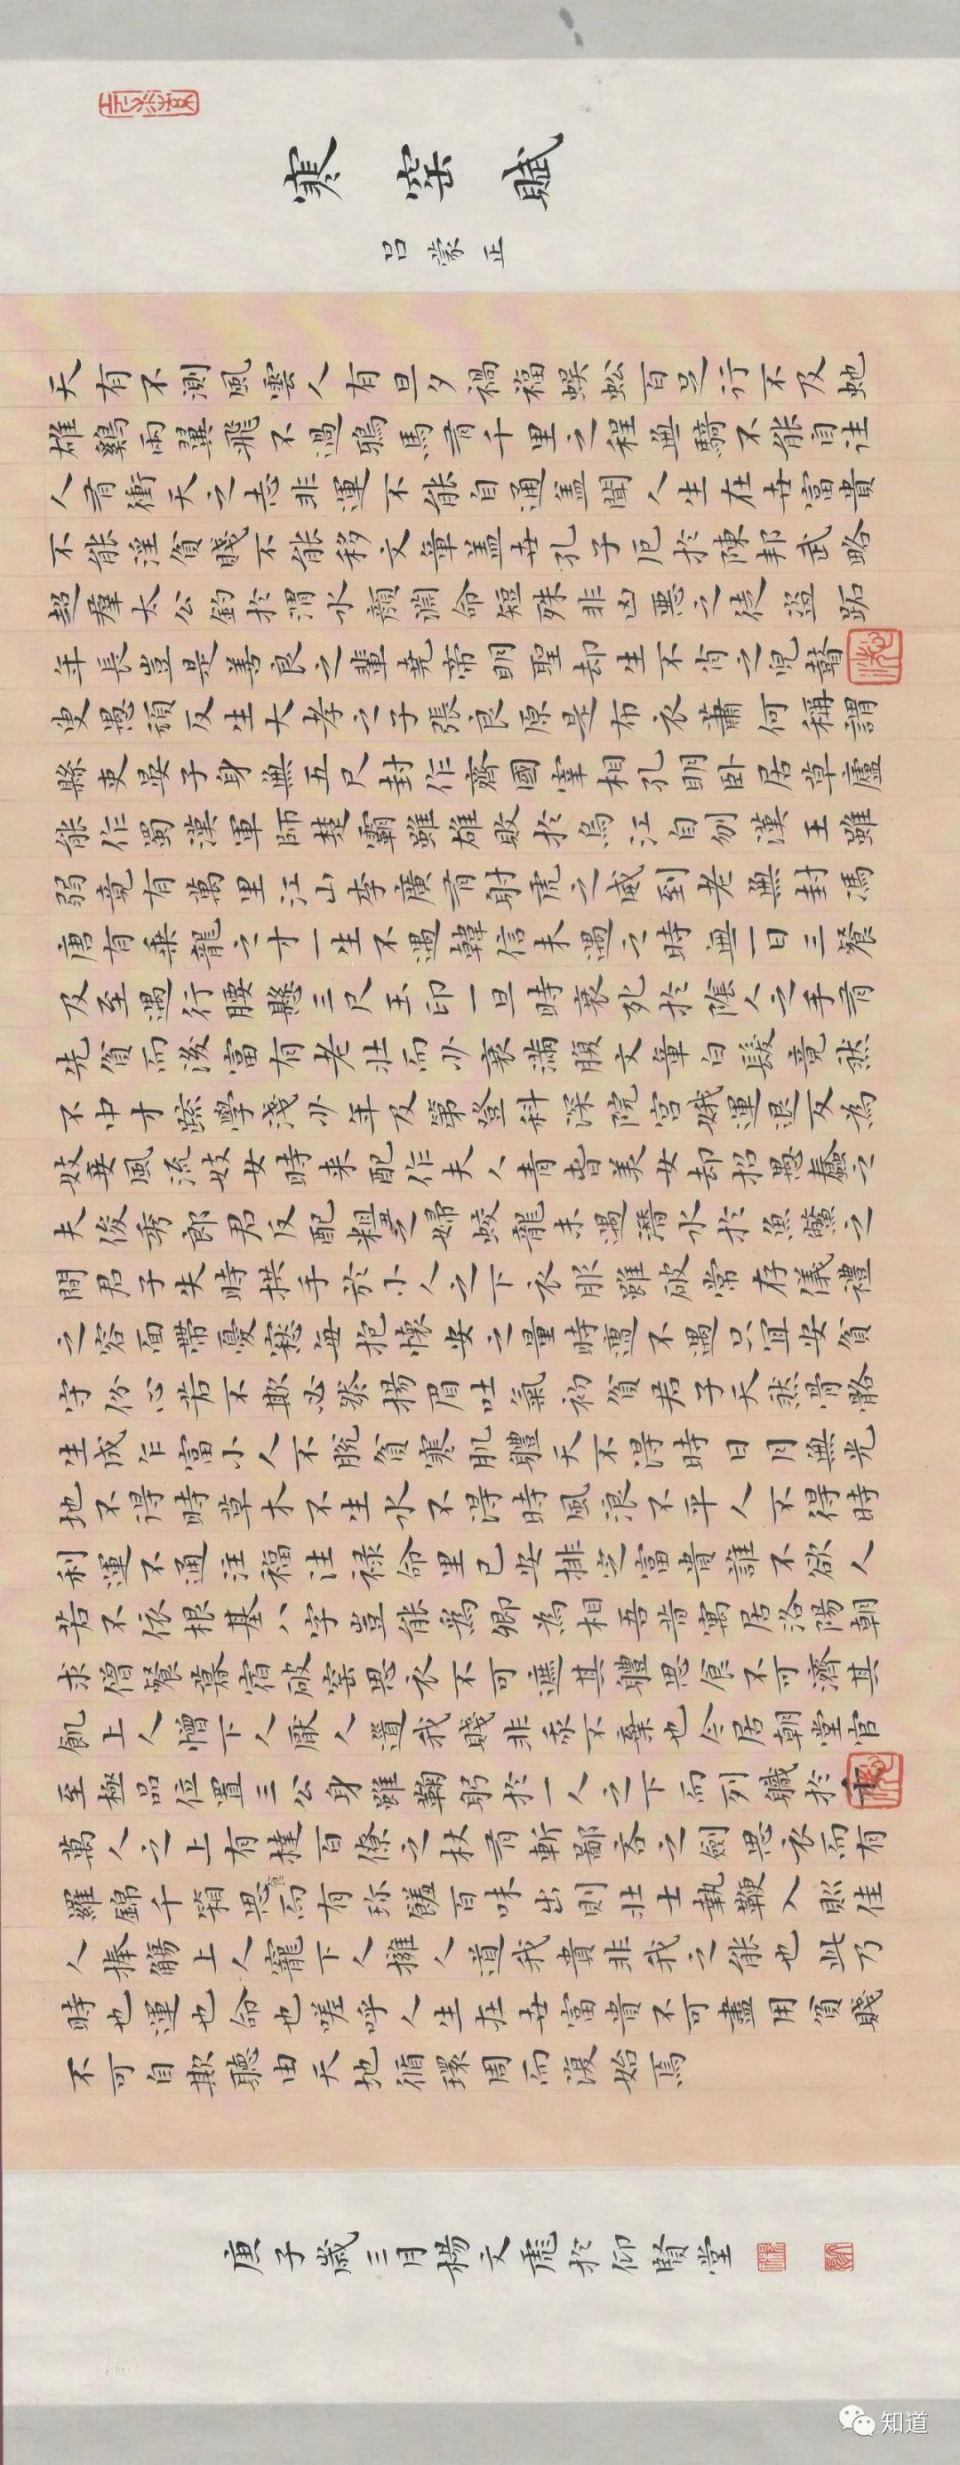 寒窑賦
呂蒙正
天有不測風雲人有旦夕禍福蜈蚣百足行不及虵
雄鷄兩翼飛不過鴉馬有千里之程無騎不能自往
人有衝天之志非運不能自通盖聞人生在世富貴
不能淫貧賤不能移文章盖世孔子厄於陳邦武略
超羣太公釣於渭水顏淵命短殊非凶惡之徒盜跖
年長豈是善良之輩堯帝明聖却生不肖之児瞽
叟愚頑反生大孝之子張良原是布衣蕭何稱謂
縣吏晏子身無五尺封作齊國宰相孔明卧居草廬
能作蜀漢軍師楚霸雖雄敗於烏江自刎漢王雖
弱竟有萬里江山李廣有射虎之威到老無封馮
唐有乗龍之才一生不遇韓信未遇之時無一日三餐
及至遇行腰懸三尺玉印一旦時衰死於陰人之手有
先貧而後富有老壯而少衰滿腹文章白髮竟然
不中才疏學淺少年及第登科深院宮娥運退反為
妓妾風流妓女時来配作夫人青春美女却招愚蠢之
夫俊秀郎君反配粗醜之婦蛟龍未遇潛水於魚鱉之
間君子失時拱手於小人之下衣服雖破常存儀禮
之容面帶憂愁每抱懷安之量時遭不遇只宜安貧
守份心若不欺必然揚眉吐氣初貧君子天然骨骼
生成乍富小人不脫貧寒肌體天不得時日月無光
地不得時草木不生水不得時風浪不平人不得時
利運不通注福注祿命里已安排定富貴誰不欲人
若不依根基八字豈能為卿為相吾昔寓居洛陽朝
求僧餐暮宿破窑思衣不可遮其體思食不可濟其
飢上人憎下人厭人道我賤非我不棄也今居朝堂官
至極品位置三公身雖鞠躬於一人之下而列職於千
萬人之上有撻百僚之杖有斬鄙吝之劍思衣而有
羅錦千箱思食而有珍饈百味出則壯士執鞭入則佳
人捧觴上人寵下人擁人道我貴非我之能也此乃
時也運也命也嗟呼人生在世富貴不可盡用貧賤
不可自欺聽由天地循環周而復始焉
庚子歲三月楊文虎於仰賢堂
知道